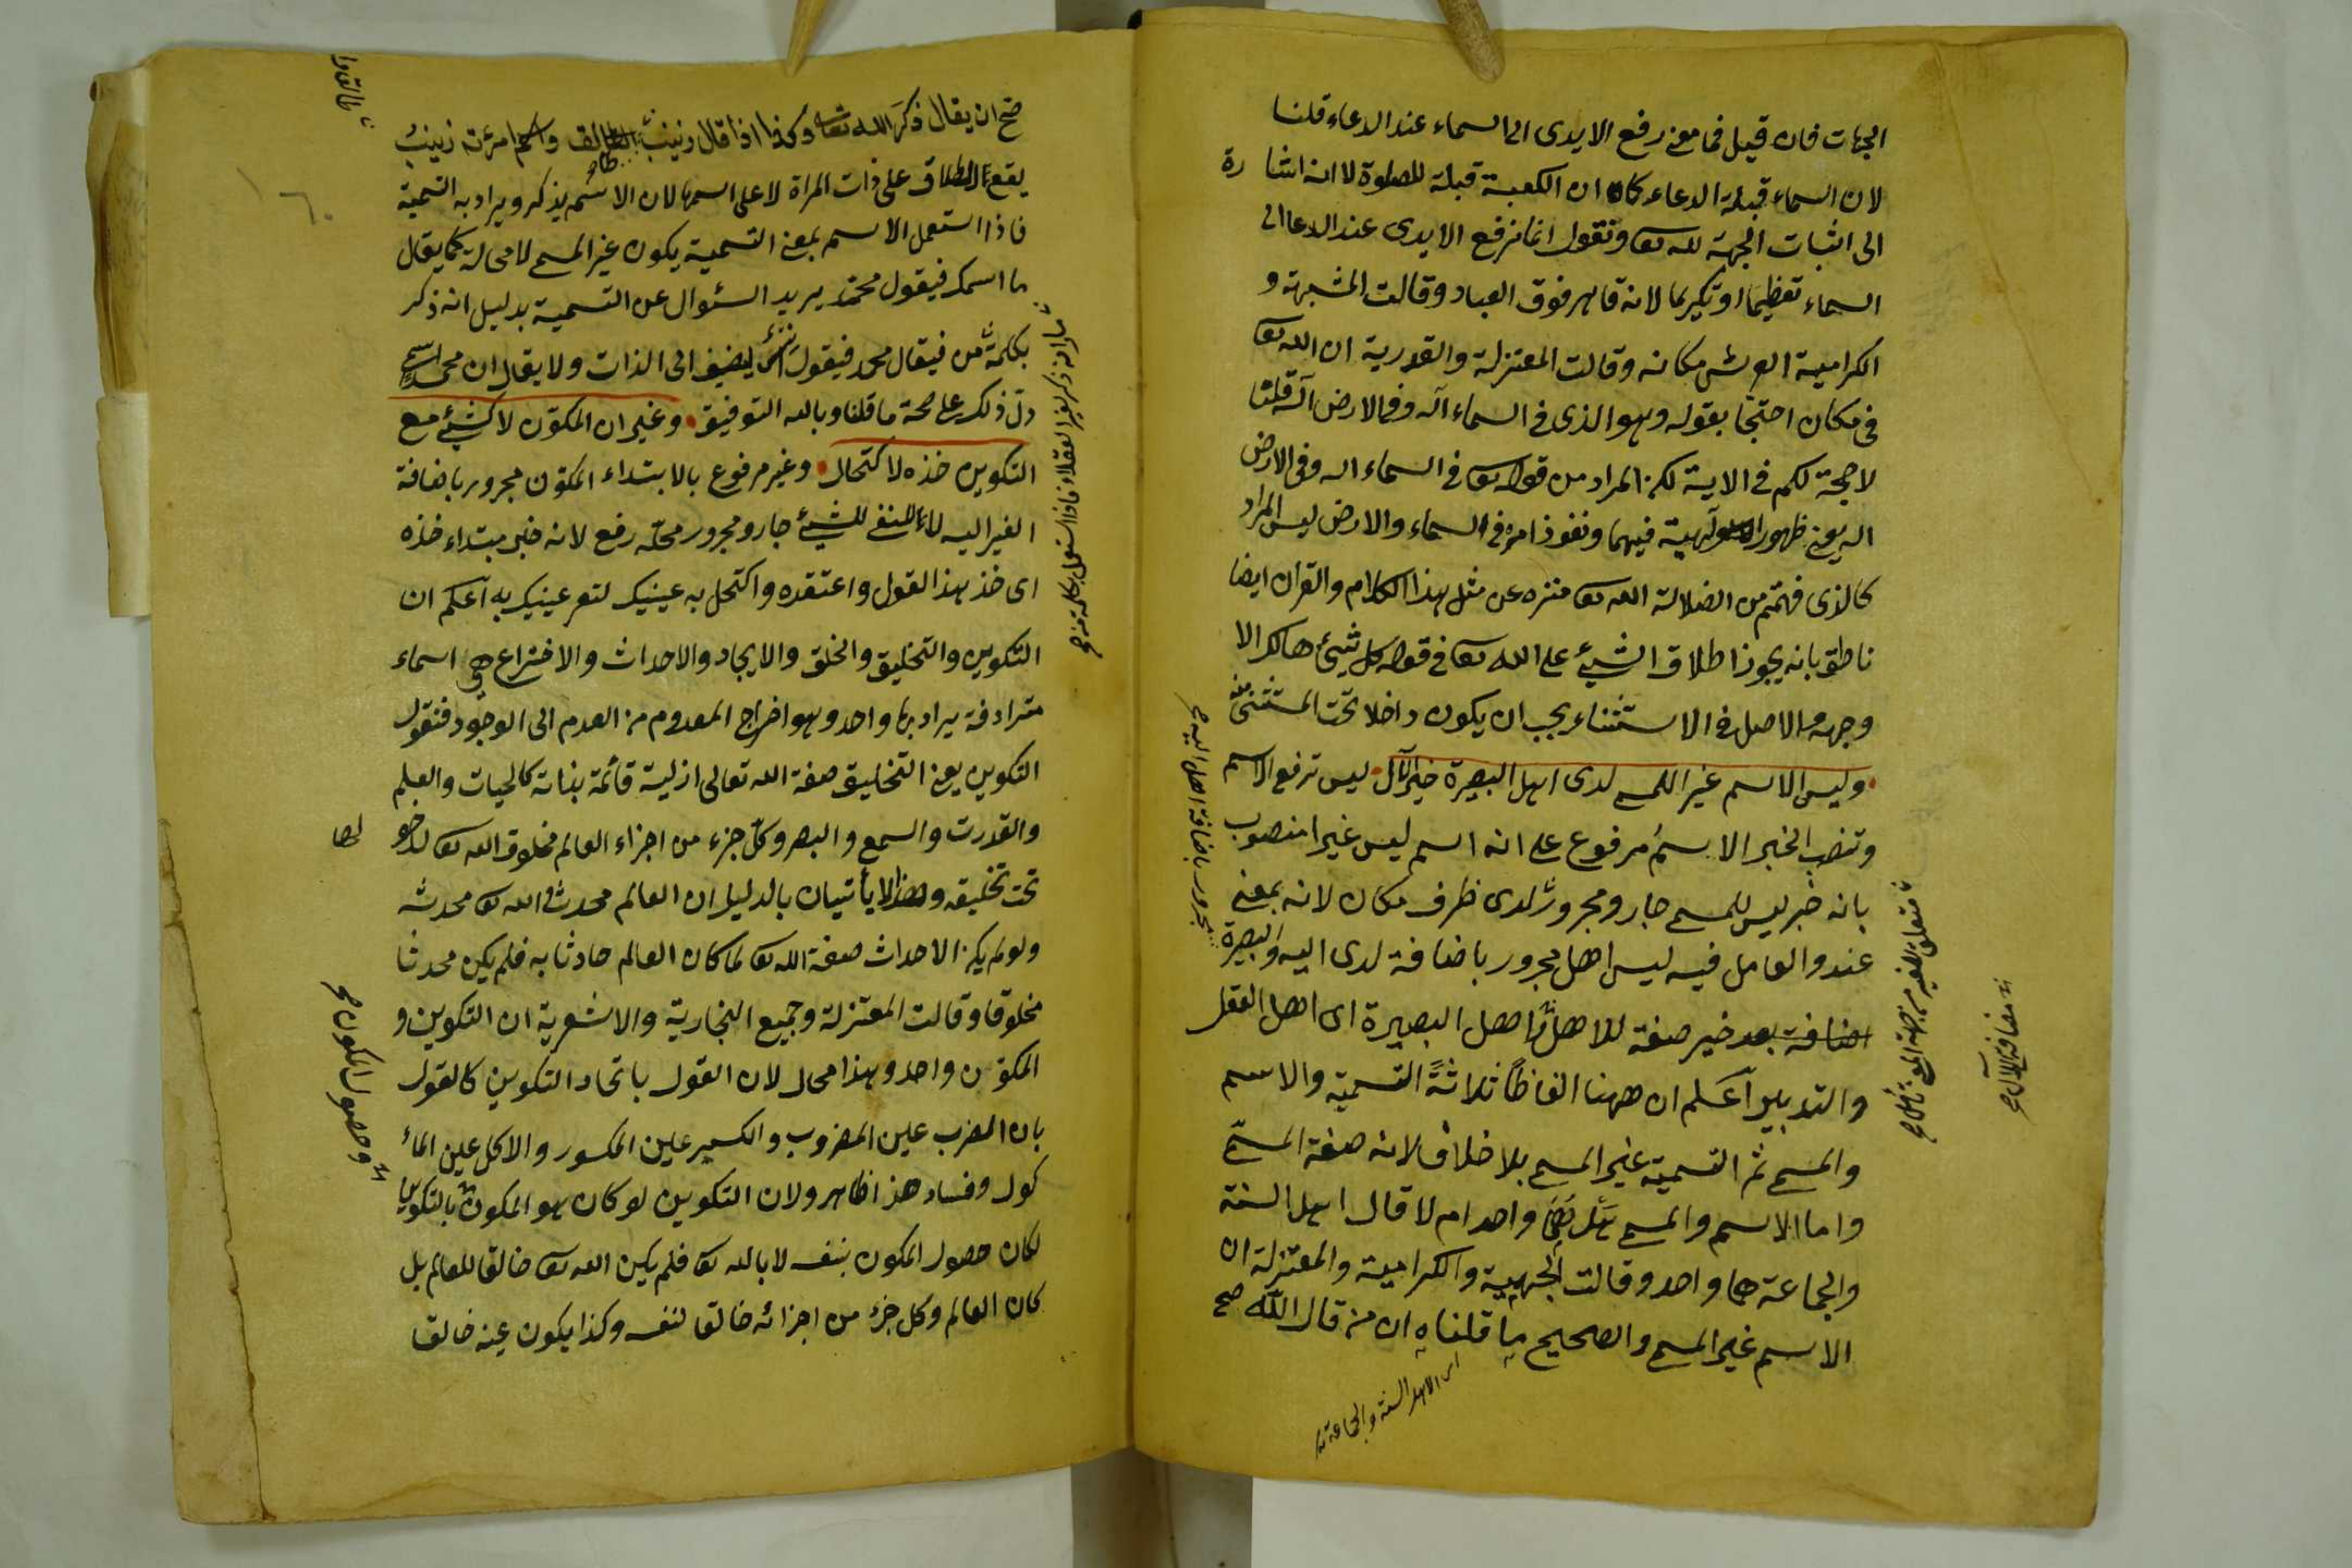 الجهات فان قيل فما معنى رفع الايدى الى السماء عند الدعاء قلنا
لان السماء قبلة الدعاء كما ان الكعبة قبلة للصلوة لا انه اشارة
الى اثبات الجهة لله تعا ونقول انما نرفع الايدى عند الدعا الى
السماء تعظيما او تكبريما لانه قاهر فوق العباد وقالت المشبهة و
الكرامية العرش مكانه وقالت المعتزلة والقدرية ان الله تعا
فى مكان احتجّا بقوله وهو الذى فى السماء آله وفى الارض آله قلنا
لا حجة لكم فى الاية لكن المراد من قوله تعا فى السماء اله وفى الارض
اله يعنى ظهور الوآلهية فيهما ونفوذ امره فى السماء والارض ليس المراد
كالذى فهمتم من الضلالة الله تعا منزه عن مثل هذا الكلام والقران ايضا
ناطق بانه يجوز اطلاق الشيئ على الله تعا فى قوله كل شيئ هالك الا
وجهه والاصل فى الاستثناء يجب ان يكون داخلا تحت المستثنى منه
وليس الاسم غير اللمسمى لدى اهل البصيرة خير آل ليس ترفع الاسم
وتنصب الخبر الاسم مرفوع على انه اسم ليس غيرا منصوب
بانه خبر ليس للمسمى جار ومجرور لدى ظرف مكان لانه بمعنى
عند والعامل فيه ليس اهل مجرور باضافة لدى اليه والبصيرة
اضافة بعد خير صفة للاهل اهل البصيرة اى اهل العقل
والتدبير اعلم ان ههنا الفاظًا ثلاثةً التسمية والاسم
والمسمى ثم التسمية غير المسمى بلا خلاف لانه صفة المسمّى
واما الاسم والمسمى هل هما واحد ام لا قال اهل السنة
والجماعة هما واحد وقالت الجهمية والكرامية والمعتزلة ان
الاسم غير المسمى والصحيح ما قلناه ان من قال الله صح
اى الاهل السنة والجماعة
مجرور باضافة اهل اليه
متعلق لغير من جهة المعنى
مضافة الآل
صح ان يقال ذكر الله تعا وكذا اذا قال زينب طالق واسم امرئته زينب
يقع الطلاق على ذات المراة لا على اسمها لان الاسم يذكر ويراد به التسمية
فاذا استعمل الاسم بمعنى التسمية يكون غير المسمى لا محالة كما يقال
ما اسمك فيقول محمد يريد السئوال عن التسمية بدليل انه ذكر
بكلمة من فيقال محمد فيقول ليضيف الى الذات ولا يقال ان محمد اسمى
دلّ ذلك على صحة ما قلنا وبالله التوفيق وغير ان المكوّن لا كشيئ مع
التكوين خذه لاكتحال وغير مرفوع بالابتداء المكوّن مجرور باضافة
الغير اليه لاء للنفى للشيئ جار ومجرور محلّه رفع لانه خبر مبتداء خذه
اى خذ بهذا القول واعتقده واكتحل به عينيك لتعر عينيك به آعلم ان
التكوين والتخليق والخلق والايجاد والاحداث والاختراع هى اسماء
مترادفة يراد بها واحد وهو اخراج المعدوم من العدم الى الوجود فنقول
التكوين يعنى التخليق صفة الله تعالى ازلية قائمة بذاته كالحيات والعلم
والقدرت والسمع والبصر وكلّ جزء من اجزاء العالم مخلوق الله تعا
تحت تخليقه يأتيان بالدليل ان العالم محدث والله تعا محدثه
ولو لم يكن الاحداث صفة الله تعا لما كان العالم حادثا به فلم يكن محدثا
مخلوقا وقالت المعتزلة وجميع النجارية والاشعرية ان التكوين و
المكوّن واحد وهذا محال لان القول باتحاد التكوين كالقول
بان الضرب عين المضروب والكسر عين المكسور والاكل عين الما
كول وفساد هذا ظاهر ولان التكوين لو كان هو المكون بالتكوين
لكان حصول المكون بنفسه لا بالله تعا فلم يكن الله تعا خالقا للعالم بل
كان العالم وكل جزء من اجزائه خالقا لنفسه وكذا يكون عينه خالقا
وحصول المكون
١٦